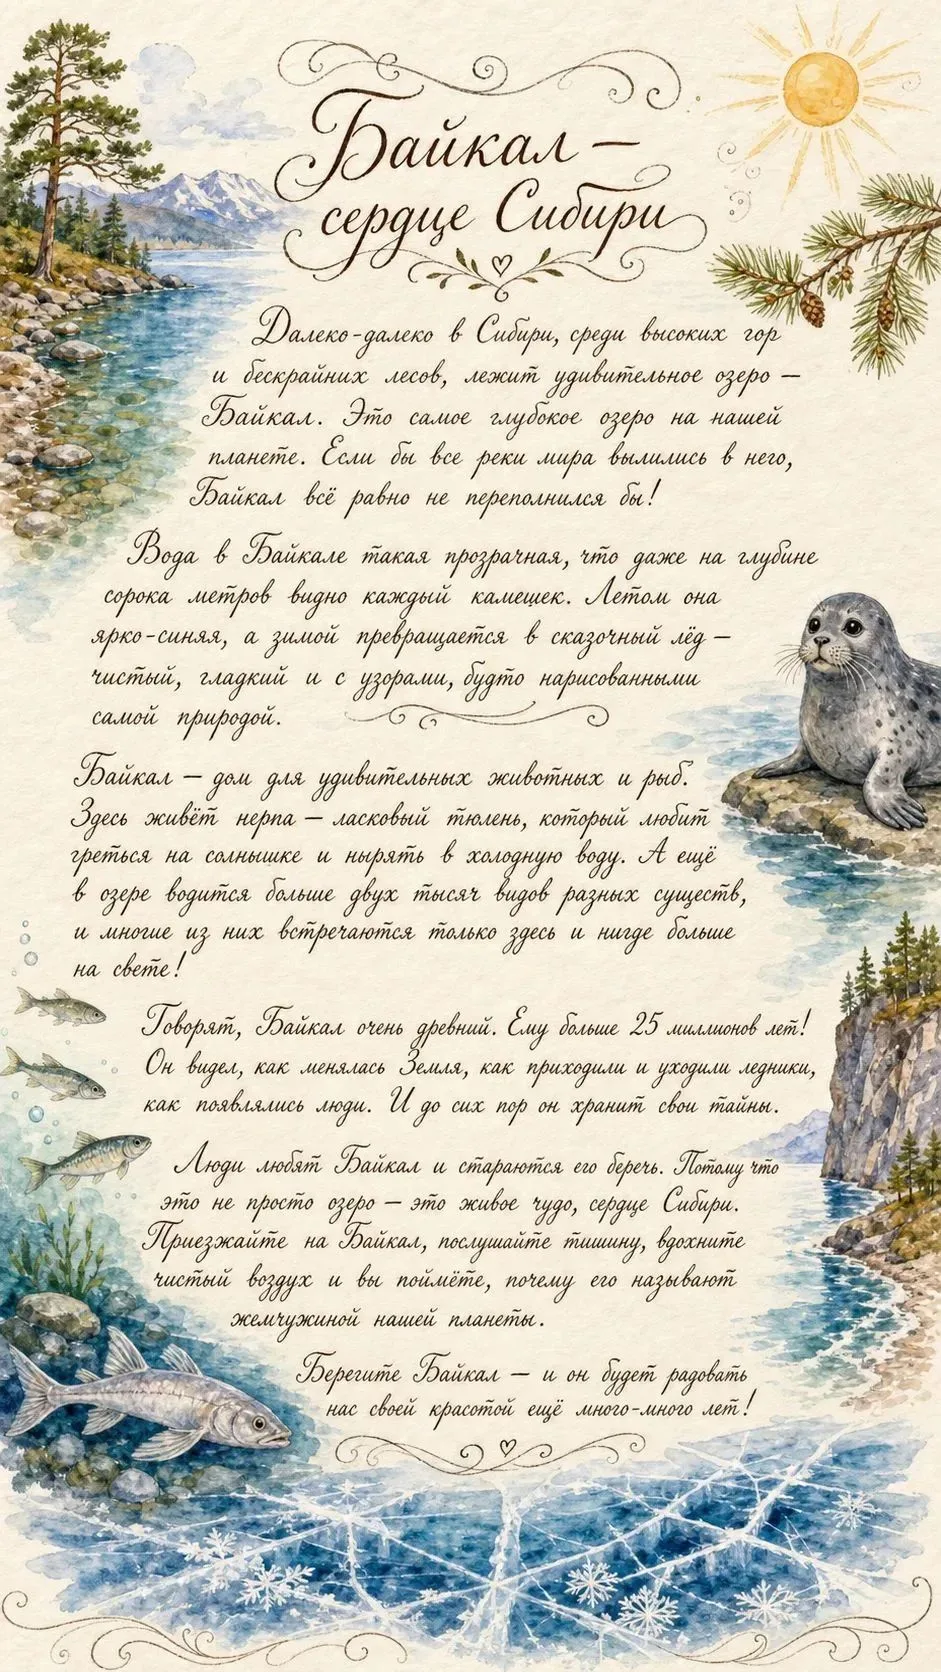 Байкал —
сердце Сибири
Далеко-далеко в Сибири, среди высоких гор
и бескрайних лесов, лежит удивительное озеро —
Байкал. Это самое глубокое озеро на нашей
планете. Если бы все реки мира вылились в него,
Байкал всё равно не переполнился бы!
Вода в Байкале такая прозрачная, что даже на глубине
сорока метров видно каждый камешек. Летом она
ярко-синяя, а зимой превращается в сказочный лёд —
чистый, гладкий и с узорами, будто нарисованными
самой природой.
Байкал — дом для удивительных животных и рыб.
Здесь живёт нерпа — ласковый тюлень, который любит
греться на солнышке и нырять в холодную воду. А ещё
в озере водится больше двух тысяч видов разных существ,
и многие из них встречаются только здесь и нигде больше
на свете!
Говорят, Байкал очень древний. Ему больше 25 миллионов лет!
Он видел, как менялась Земля, как приходили и уходили ледники,
как появлялись люди. И до сих пор он хранит свои тайны.
Люди любят Байкал и стараются его беречь. Потому что
это не просто озеро — это живое чудо, сердце Сибири.
Приезжайте на Байкал, послушайте тишину, вдохните
чистый воздух и вы поймёте, почему его называют
жемчужиной нашей планеты.
Берегите Байкал — и он будет радовать
нас своей красотой ещё много-много лет!